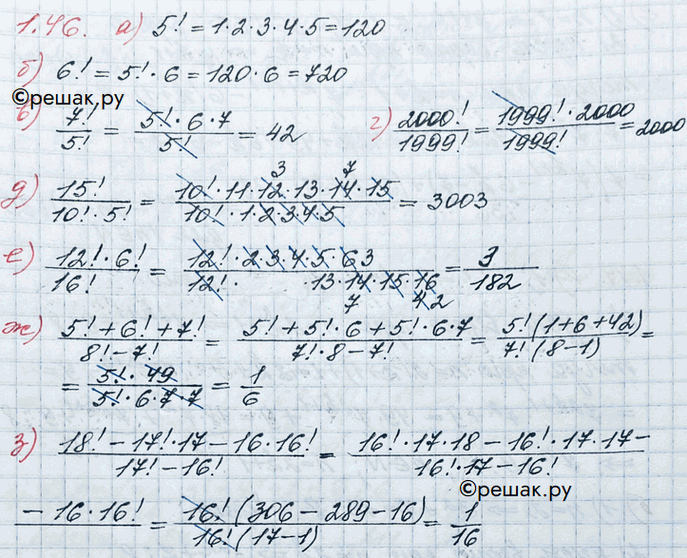 1.46. а) 5! = 1·2·3·4·5 = 120
б) 6! = 5!·6 = 120·6 = 720
©решак.ру
в) 7!/5! = 5!·6·7/5! = 42 г) 2000!/1999! = 1999!·2000/1999! = 2000
д) 15!/10!·5! = 10!·11·12·13·14·15/10!·1·2·3·4·5 = 3003
3 7
е) 12!·6!/16! = 12!·2·3·4·5·6 3/12!· ·13·14·15·16 = 3/182
7 4 2
ж) 5!+6!+7!/8!-7! = 5!+5!·6+5!·6·7/7!·8-7! = 5!(1+6+42)/7!(8-1) =
= 5!·49/5!·6·7·7 = 1/6
з) 18!-17!·17-16·16!/17!-16! = 16!·17·18-16!·17·17-/16!·17-16!
©решак.ру
-16·16!/ = 16!(306-289-16)/16!(17-1) = 1/16